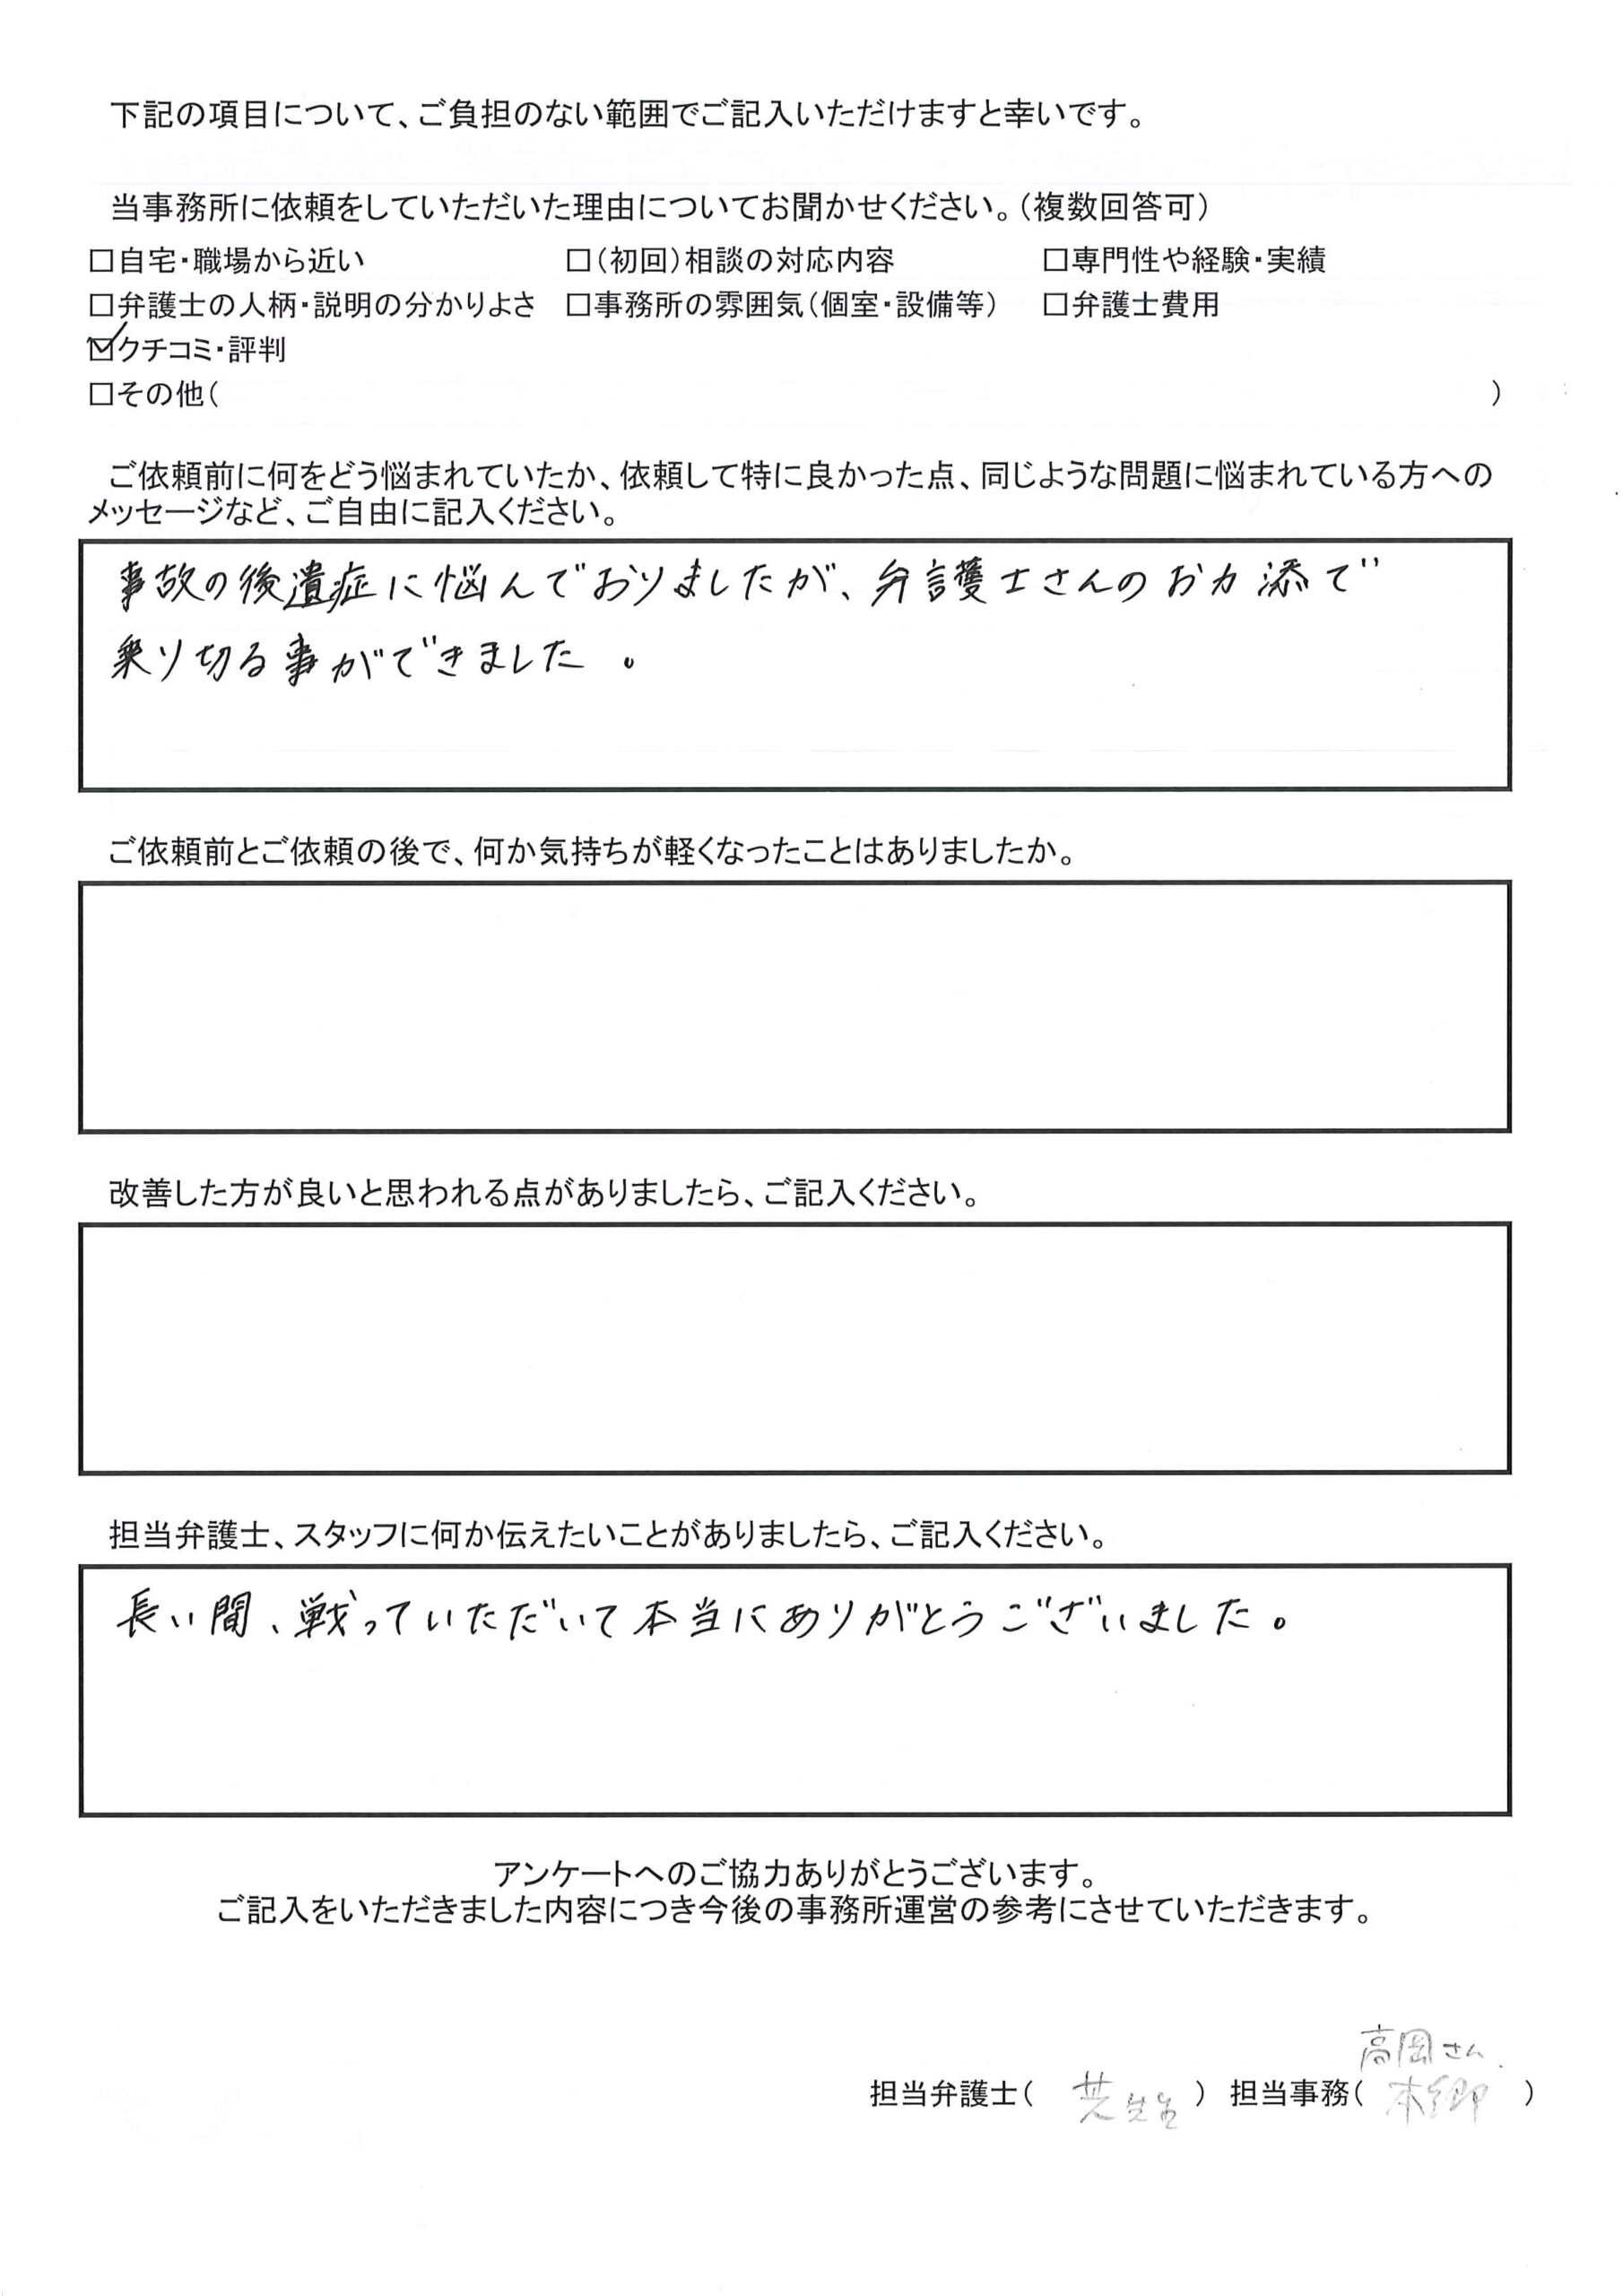 下記の項目について、ご負担のない範囲でご記入いただけますと幸いです。
当事務所に依頼をしていただいた理由についてお聞かせください。（複数回答可）
□自宅・職場から近い □（初回）相談の対応内容 □専門性や経験・実績
□弁護士の人柄・説明の分かりよさ □事務所の雰囲気（個室・設備等） □弁護士費用
☑クチコミ・評判
□その他（ ）
ご依頼前に何をどう悩まれていたか、依頼して特に良かった点、同じような問題に悩まれている方への
メッセージなど、ご自由に記入ください。
事故の後遺症に悩んでおりましたが、弁護士さんのお力添で
乗り切る事ができました。
ご依頼前とご依頼の後で、何か気持ちが軽くなったことはありましたか。
改善した方が良いと思われる点がありましたら、ご記入ください。
担当弁護士、スタッフに何か伝えたいことがありましたら、ご記入ください。
長い間、戦っていただいて本当にありがとうございました。
アンケートへのご協力ありがとうございます。
ご記入をいただきました内容につき今後の事務所運営の参考にさせていただきます。
高岡さん
担当弁護士（ 先生 ） 担当事務（ 本郷 ）